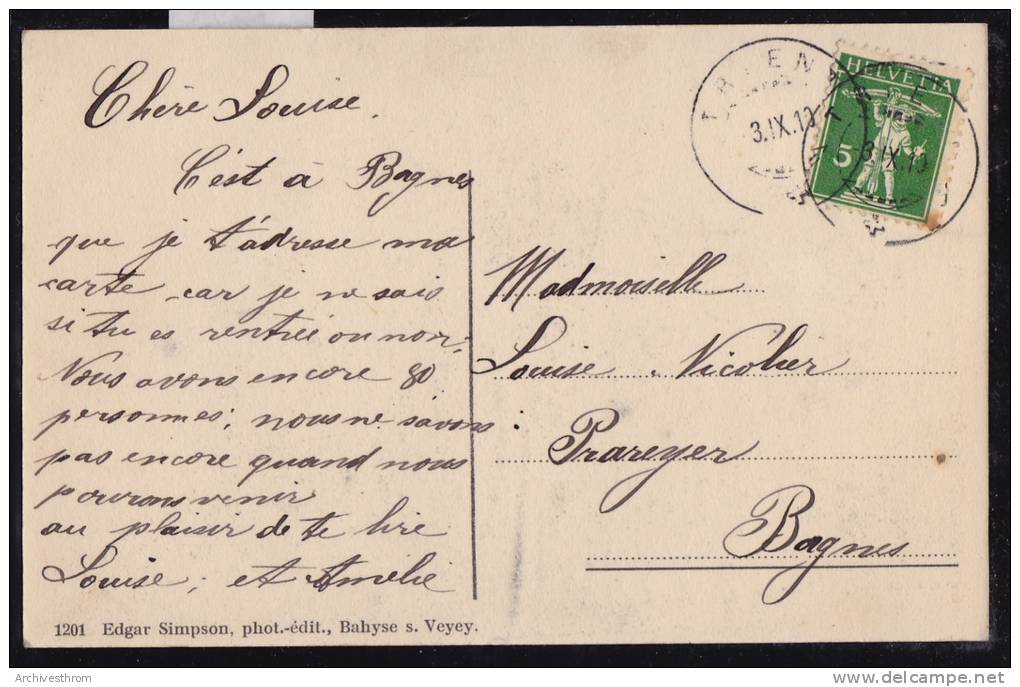 Chère Louise.
C'est à Bagnes
que je t'adresse ma
carte car je ne sais
si tu es rentrée ou non;
Nous avons encore 80
personnes; nous ne savons
pas encore quand nous
pourons venir
au plaisir de te lire
Louise; et Amélie
1201 Edgar Simpson, phot.-édit., Bahyse s. Vevey.
HELVETIA
5
3.IX.10
3.IX.10
Madmoiselle
Louise Nicolier
Prareyer
Bagnes
Archivesthrom
www.delcampe.net